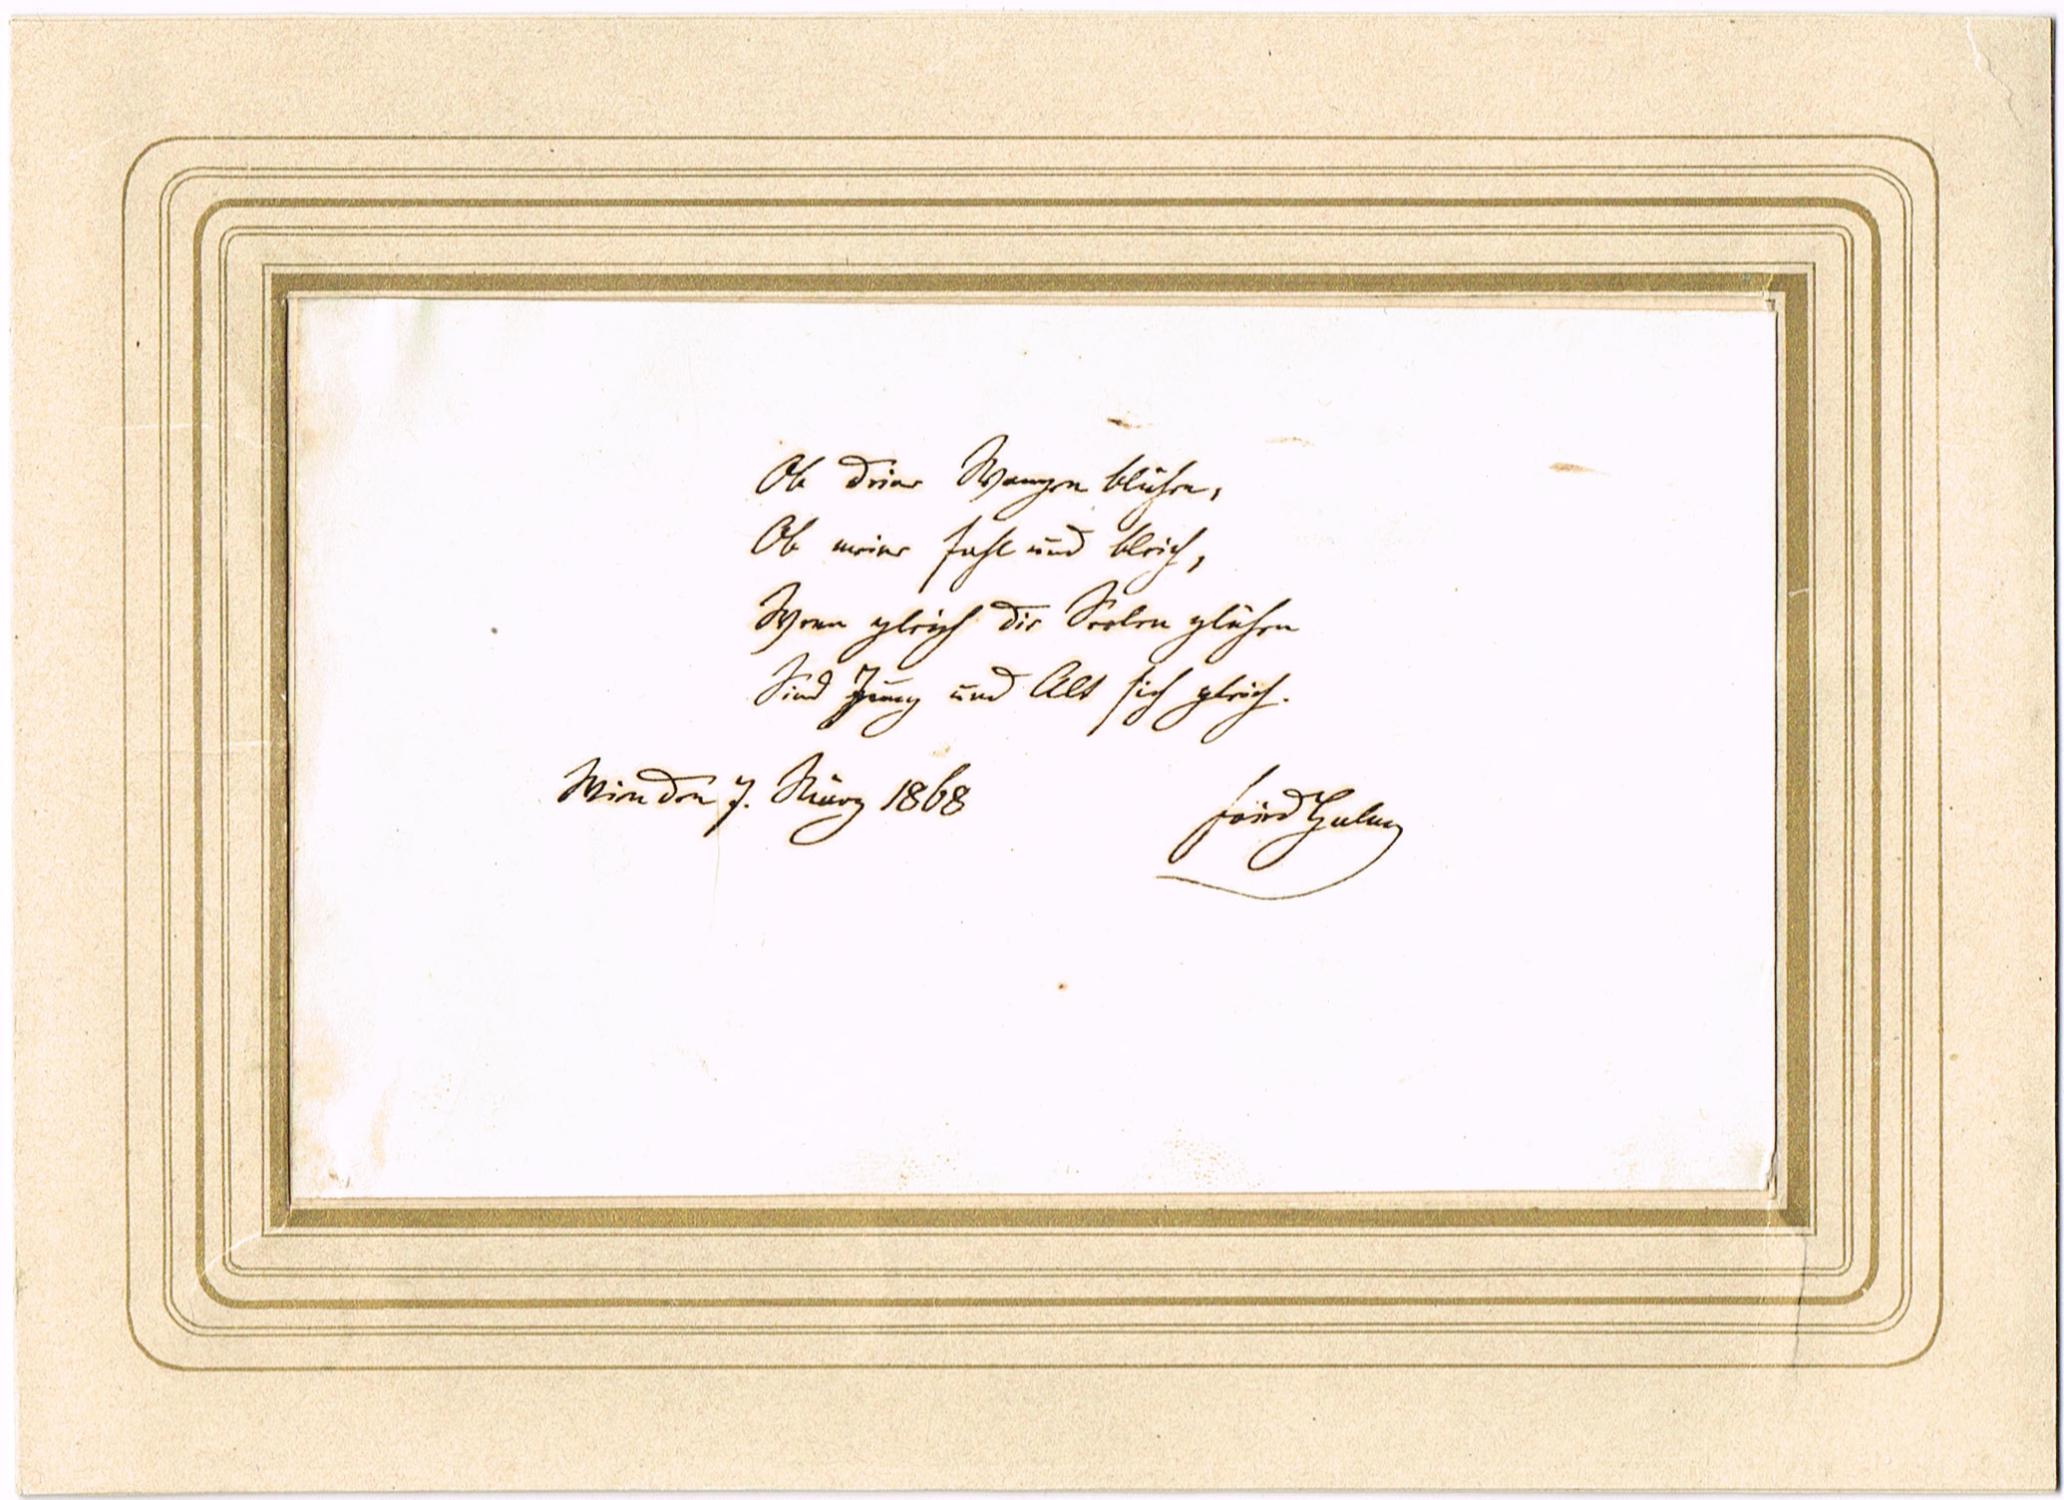 Ob deine Wangen blühen,
Ob meine fahl und bleich,
Wenn gleich die Seelen glühen
Sind Jung und Alt sich gleich.
Wien den 7. März 1868
Friedr Halm